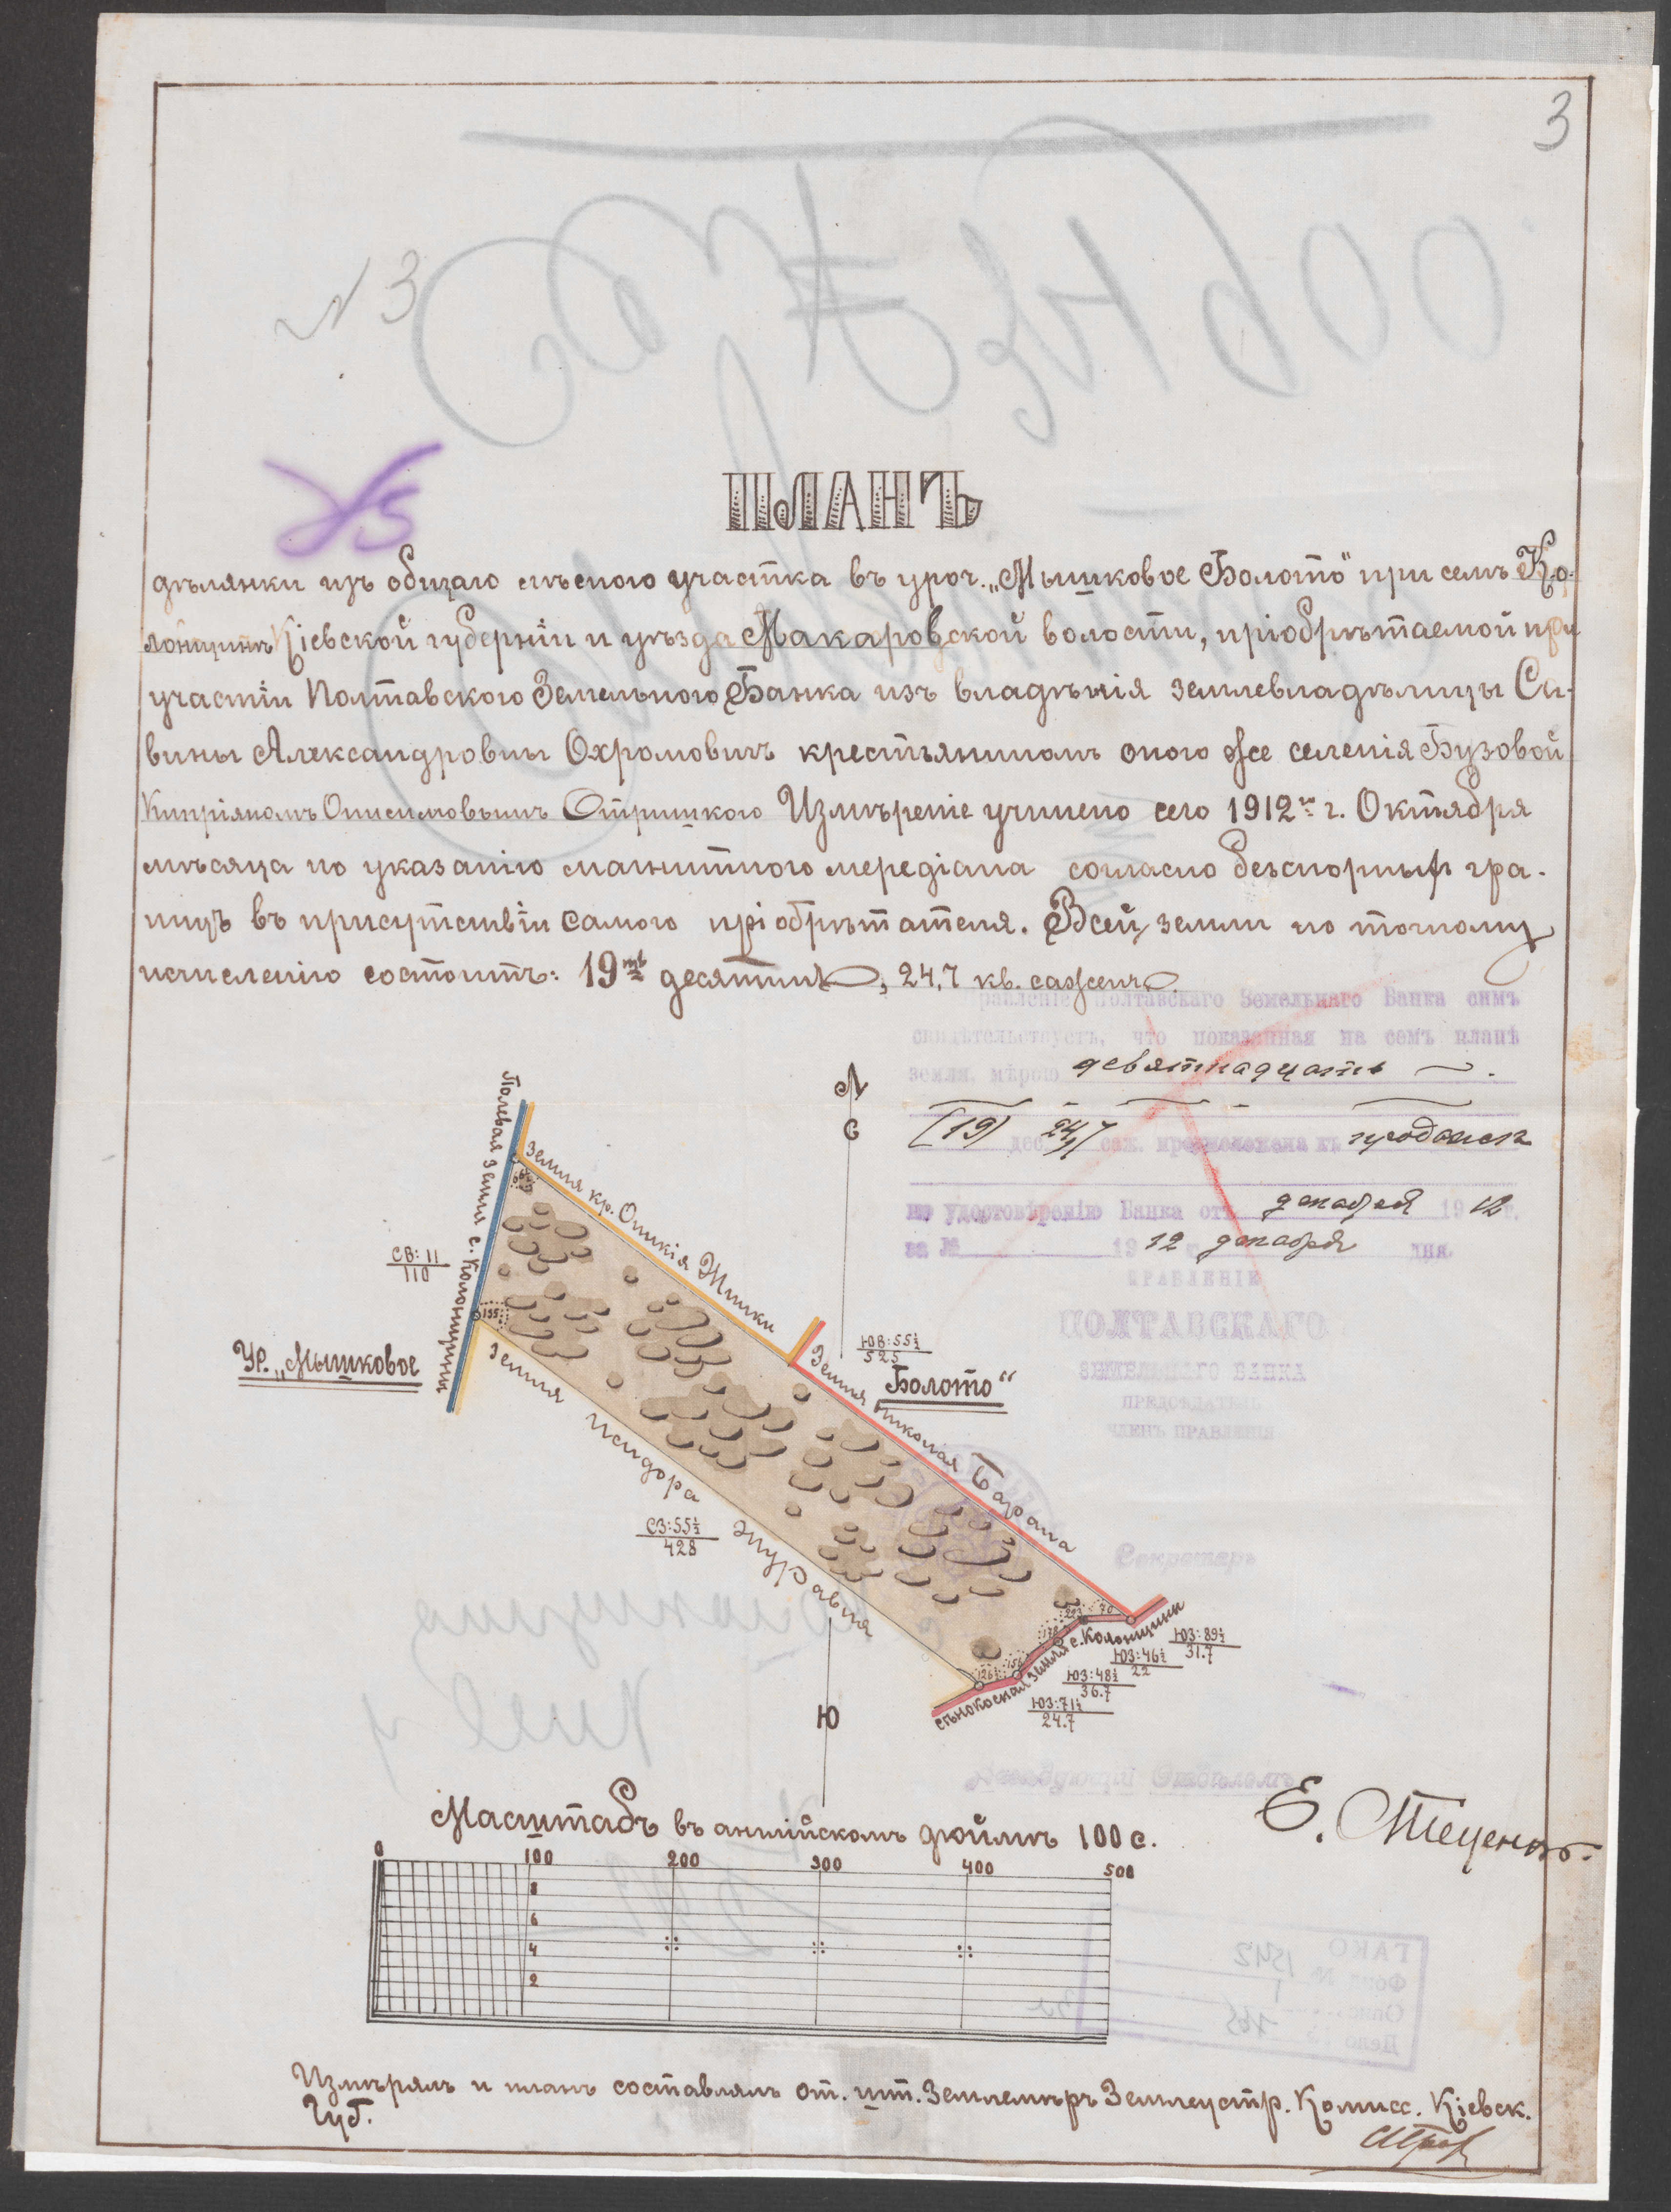 3
N 3
ПЛАНЪ
дѣлянки изъ общаго лѣсного участка въ уроч. „Мышковое Болото" при селѣ Ко-
лонщинѣ Кіевской губерніи и уѣзда Макаровской волости, пріобрѣтаемой при
участіи Полтавского Земельного Банка изъ владѣнія землевладѣлицы Са-
вины Александровны Охромовичъ крестьяниномъ оного же селенія Бузовой
Кипріяномъ Онисимовымъ Стрицкого Измѣреніе учинено сего 1912 г. Октября
мѣсяца по указанію магнитного мередіана согласно безспорныхъ гра-
ницъ въ присутствіи самого пріобрѣтателя. Всей земли по точному
исчисленію состоитъ: 19ть десятинъ, 24,7 кв. сажень.
равленіе Полтавскаго Земельнаго Банка симъ
свидѣтельствуетъ, что показанная на семъ планѣ
земля, мѣрою девятнадцать
(19) дес. 24,7 саж. предположена къ продажѣ
по удостовѣренію Банка отъ декабря 1912 г.
за № 19 12 декабря дня
ПРАВЛЕНІЕ
ПОЛТАВСКАГО
ЗЕМЕЛЬНАГО БАНКА
ПРЕДСѢДАТЕЛЬ
ЧЛЕНЪ ПРАВЛЕНІЯ
Секретарь
С
Полевая земля с. Колонщины
Земля кр. Оникія Жилки
СВ: 11
110
155
Ур. „Мышковое
ЮВ: 55½
525
Болото"
Земля Николая Барана
Земля Исидора Журавля
СЗ: 55½
428
223 70
178
126½
сѣнокосная земля с. Колонщины
ЮЗ: 89½
31.7
ЮЗ: 46½
22
ЮЗ: 48½
36.7
ЮЗ: 71½
24.7
Ю
Завѣдующій Отдѣломъ
Е. Стеценко
Масштабъ въ англійскомъ дюймѣ 100 с.
0 100 200 300 400 500
8
6
4
2
ГАКО
Фонд № 1542
Опис 1
Дело 165
Измѣрялъ и планъ составлялъ от. шт. Землемѣръ Землеустр. Комисс. Кіевск.
Губ.